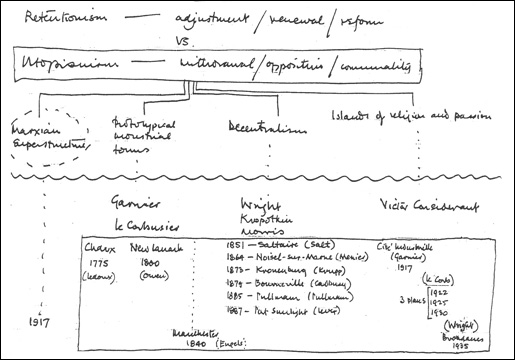 Retentionism — adjustment/renewal/reform
VS.
Utopianism — withdrawal/opposition/communality
Marxian
Superstructure
Prototypical
industrial
towns
Decentralism
Islands of religion and passion
Garnier
le Corbusier
Wright
Kropotkin
Morris
Victor Considerant
Chaux
1775
(Ledoux)
New Lanark
1800
(Owen)
Manchester
1840 (Engels)
1851 — Saltaire (Salt)
1864 — Noisel-sur-Marne (Menier)
1873 — Kronenburg (Krupp)
1879 — Bournville (Cadbury)
1885 — Pullman (Pullman)
1887 — Port Sunlight (Lever)
Cité Industrielle
(Garnier)
1917
(le Corb)
3 plans
1922
1925
1930
(Wright)
Broadacres
1935
1917